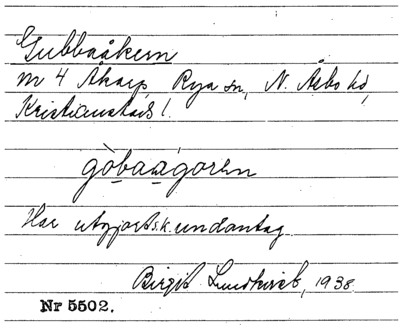 Gubbaåkern
m 4 Åkarp, Rya sn, N. Åsbo hd,
Kristianstads l.
gòbaágoren
Har utgjort s.k. undantag.
Birgit Lundkvist, 1938.
Nr 5502.